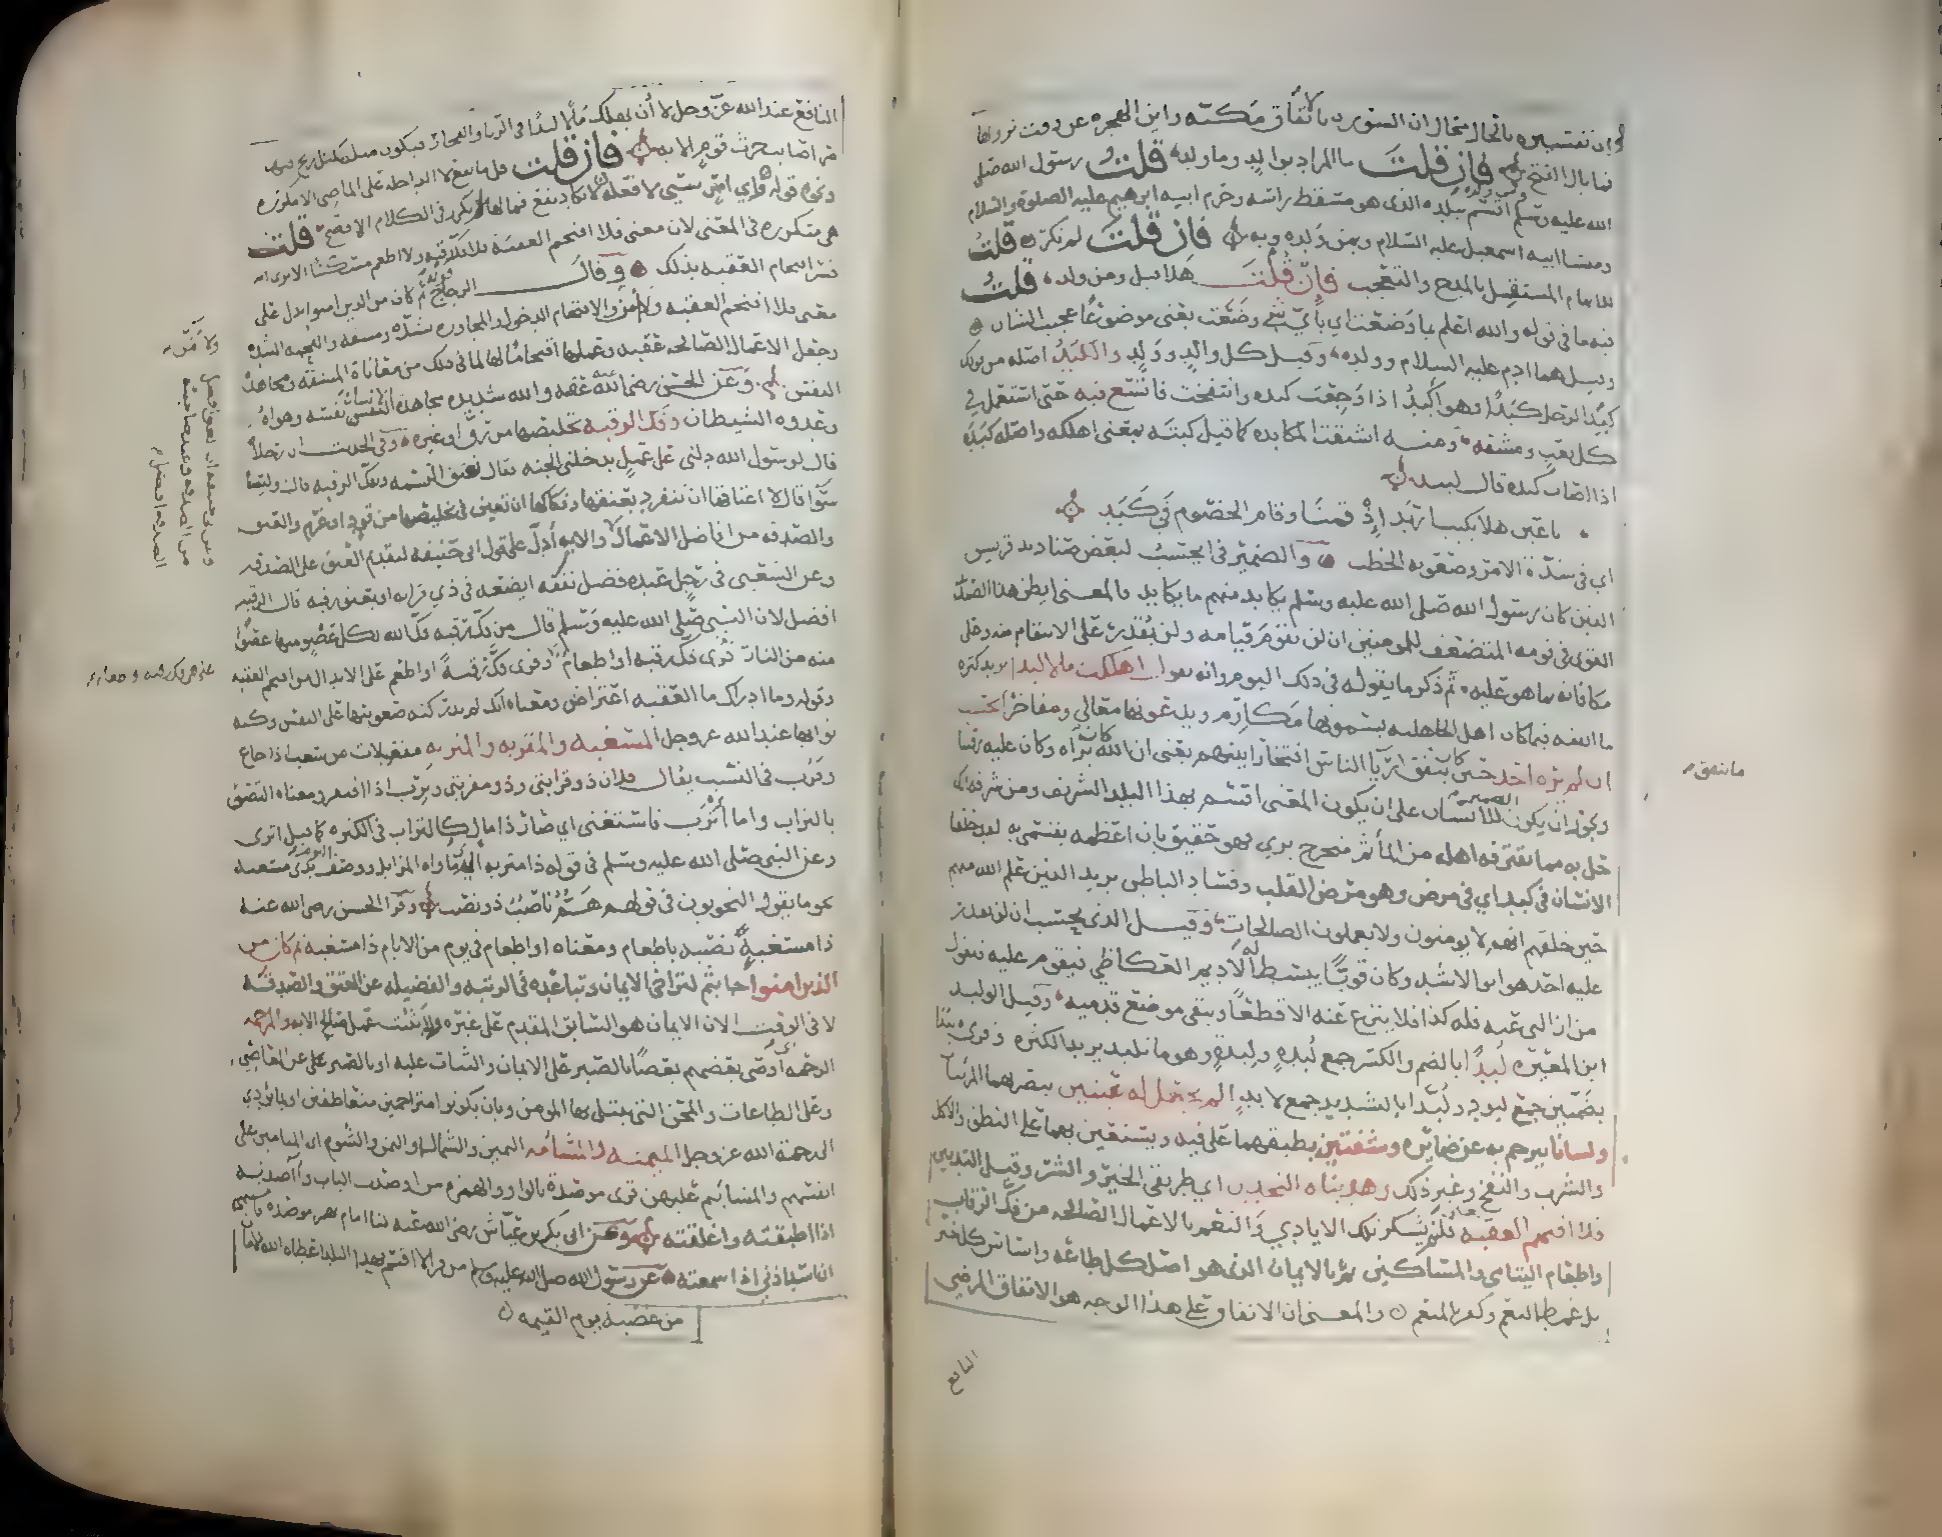 وان تفسيره بالحال محال ان السورة بالاتفاق مكية واين الهجرة عن وقت نزولها
فما بال الفتح فان قلت ما المراد بوالد وما ولد قلت رسول الله صلى
الله عليه وسلم ومن ولده اقسم ببلده الذى هو مسقط راسه وحرم ابيه ابرهيم عليه الصلوة والسلام
ومنشا ابيه اسمعيل عليه السلام وبمن ولده وبه فان قلت لم نكر قلت
للابهام المستقل بالمدح والتعجب فان قلت هلا قيل ومن ولد قلت
فيه ما في قوله والله اعلم بما وضعت اي باي شي وضعت يعنى موضوعا عجيب الشان
وقيل هما ادم عليه السلام وولده وقيل كل والد وولد والكبد اصله من قولك
كبد الرجل كبدا وهو اكبد اذا وجعت كبده وانتفخت فاتسع فيه حتى استعمل في
كل تعب ومشقة ومنه اشتقت المكابده كما قيل كبته بمعنى اهلكه واصله كبده
اذا اصاب كبده قال لبيد
يا عين هلا بكيت اربد اذ قمنا وقام الخصوم في كبد
اي في شدة الامر وصعوبة الخطب والضمير في ايحسب لبعض صناديد قريش
الذين كان رسول الله صلى الله عليه وسلم يكابد منهم ما يكابد والمعنى ايظن هذا الصنديد
القوى في قومه المتضعف للمومنين ان لن تقوم قيامه ولن يقدر على الانتقام منه وعلى
مكافاته بما هو عليه ثم ذكر ما يقوله في ذلك اليوم وانه يقول اهلكت مالا لبدا يريد كثرة
ما انفقه فيما كان اهل الجاهلية يسمونها مكارم ويدعونها معالي ومفاخر ايحسب
ان لم يره احد حين كان ينفق رئا الناس افتخارا بينهم يعنى ان الله كان يراه وكان عليه رقيبا
ويجوز ان يكون الضمير للانسان على ان يكون المعنى اقسم بهذا البلد الشريف ومن شرفه انك
حل به مما يقترفه اهله من المآثم متحرج بري فهو حقيق بان اعظمه بقسمي به لقد خلقنا
الانسان في كبد اي في مرض وهو مرض القلب وفساد الباطن يريد الذين علم الله منهم
حين خلقهم انهم لا يومنون ولا يعملون الصالحات وقيل الذى يحسب ان لن يقدر
عليه احد هو ابو الاشد وكان قويا يبسط له الاديم العكاظي فيقوم عليه فيقول
من ازالني عنه فله كذا فلا ينزع عنه الا قطعا ويبقى موضع قدميه وقيل الوليد
ابن المغيره لبدا بالضم والكسر جمع لبدة ولبدة وهو ما تلبد يريد الكثره وقرى لبدا
بضمتين جمع لبود ولبدا بالتشديد جمع لابد الم نجعل له عينين يبصر بهما المرئيات
ولسانا يترجم به عن ضمائره وشفتين يطبقهما على فيه ويستعين بهما على النطق والاكل
والشرب والنفخ وغير ذلك وهديناه النجدين اي طريقي الخير والشر وقيل الثديين
فلا اقتحم العقبة يعنى فلم يشكر تلك الايادي والنعم بالاعمال الصالحه من فك الرقاب
واطعام اليتامى والمساكين ثم بالايمان الذى هو اصل كل طاعه واساس كل خير
بل غمط النعم وكفر بالمنعم والمعنى ان الانفاق على هذا الوجه هو الانفاق المرضي
النافع
ما ينفق
النافع عند الله عز وجل لا ان يهلك مالا لبدا في الريا والفخار فيكون مثله كمثل ريح فيها
صر اصابت حرث قوم الايه فان قلت قل ما تقع لا الداخله على الماضي الا مكررة
ونحوه قوله فاي امر سيي لا فعله لا تكاد تقع فما لها لم تكرر في الكلام الافصح قلت
هي متكررة في المعنى لان معنى فلا اقتحم العقبة فلا فك رقبه ولا اطعم مسكينا الا ترى انه
فسر اقتحام العقبه بذلك وقال الزجاج قوله ثم كان من الذين امنوا يدل على
معنى فلا اقتحم العقبه ولا امن والاقتحام الدخول والمجاوزه بشده ومشقه والقحمه الشدة
وجعل الاعمال الصالحه عقبه وعملها اقتحاما لها لما في ذلك من معاناة المشقه ومجاهدة
النفس وعن الحسن رضى الله عنه عقبه والله شديده مجاهدة الانسان نفسه وهواه
وعدوه الشيطان وفك الرقبه تخليصها من رق او غيره وفى الحديث ان رجلا
قال لرسول الله دلنى على عمل يدخلنى الجنه فقال تعتق النسمه وتفك الرقبه قال اوليسا
سوا قال لا اعتاقها ان تنفرد بعتقها وفكاكها ان تعين في تخليصها من قود او غرم والعتق
والصدقه من افاضل الاعمال والايه ادل على قول ابي حنيفه لتقديم العتق على الصدقه
وعن الشعبي في رجل عنده فضل نفقه ايضعه في ذي قرابه او يعتق رقبه قال الرقبه
افضل لان النبي صلى الله عليه وسلم قال من فك رقبه فك الله بكل عضو منها عضوا
منه من النار قرى فك رقبه او اطعام وقرى فك رقبة او اطعم على الابدال من اقتحم العقبه
وقوله وما ادراك ما العقبه اعتراض ومعناه انك لم تدر كنه صعوبتها على النفس وكنه
ثوابها عند الله عز وجل المسغبه والمقربه والمتربه مفعلات من سغب اذا جاع
وقرب في النسب يقال فلان ذو قرابتى وذو مقربتى وترب اذا افتقر ومعناه التصق
بالتراب واما اترب فاستغنى اي صار ذا مال كالتراب في الكثره كما قيل اثرى
وعن النبي صلى الله عليه وسلم في قوله ذا متربه الذى ماواه المزابل ووصف اليوم بذى مسغبه
نحو ما يقول النحويون في قولهم هم ناصب ذو نصب وقرا الحسن رضى الله عنه
ذا مسغبة نصبه باطعام ومعناه او اطعام في يوم من الايام ذا مسغبه ثم كان من
الذين امنوا جا بثم لتراخي الايمان وتباعده في الرتبه والفضيله عن العتق والصدقه
لا في الوقت لان الايمان هو السابق المقدم على غيره ولا يثبت عمل صالح الا به والمرحمه
الرحمه اي اوصى بعضهم بعضا بالصبر على الايمان والثبات عليه او بالصبر على عن المعاصي
وعلى الطاعات والمحن التى يبتلى بها المومن وبان يكونوا متراحمين متعاطفين او بما يودي
الى رحمة الله عز وجل الميمنه والمشأمه اليمين والشمال او اليمن والشوم اي الميامين على
انفسهم والمشائيم عليهن قرى موصدة بالواو والهمزه من اوصدت الباب وآصدته
اذا اطبقته واغلقته وعن ابي بكر بن عياش رضى الله عنه لنا امام يهمز موصده فاشتهى
ان اسد اذني اذا سمعته عن رسول الله صلى الله عليه وسلم من قرا لا اقسم بهذا البلد اعطاه الله الامان
من غضبه يوم القيمه